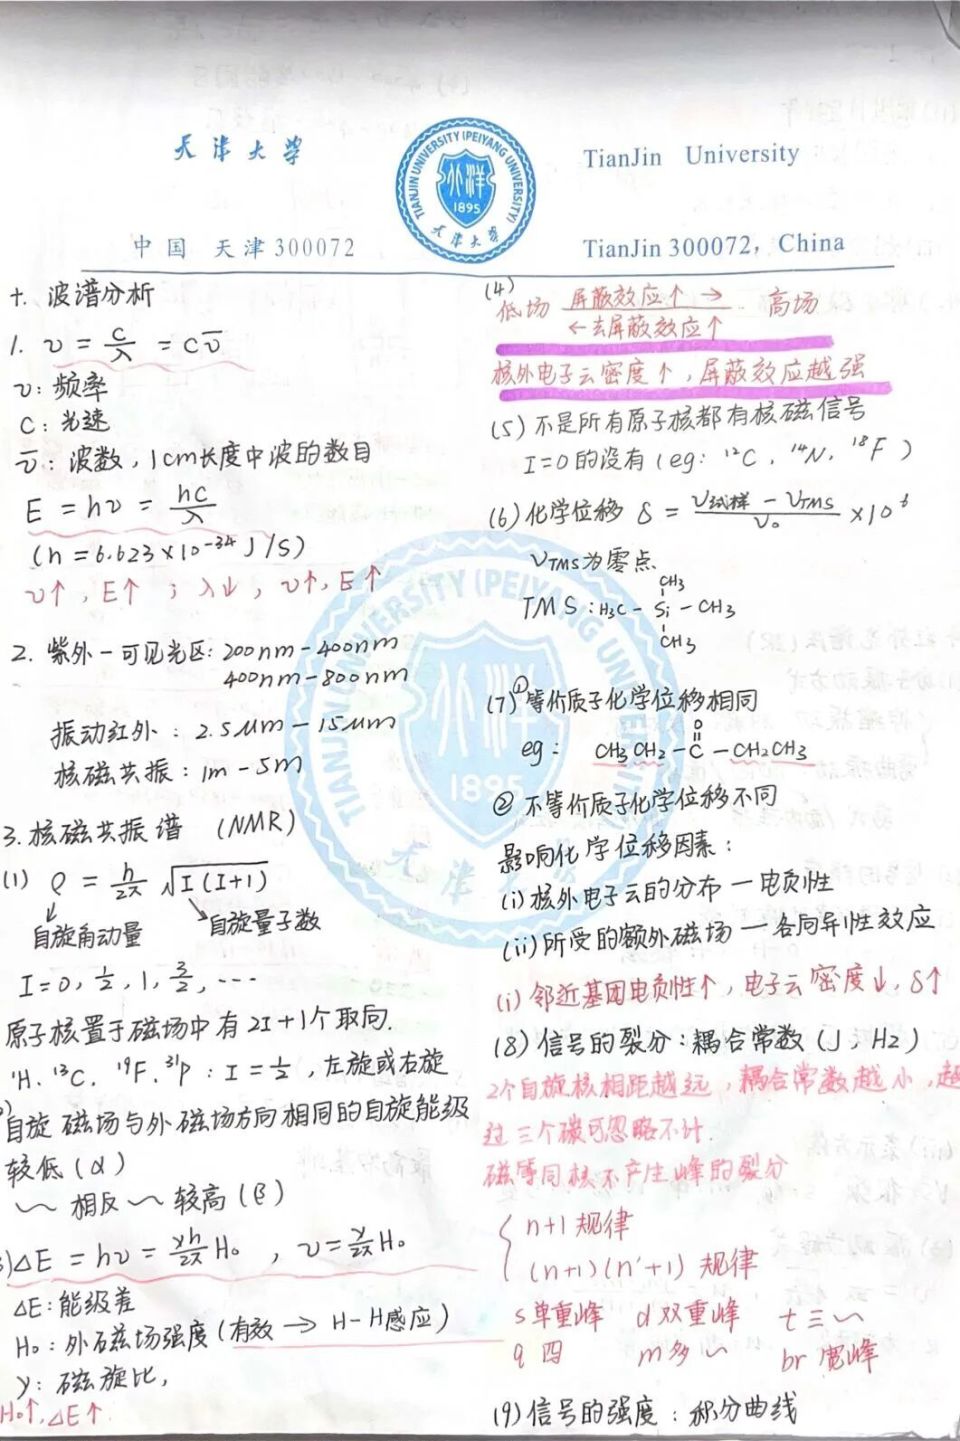 天津大学
TIANJIN UNIVERSITY (PEIYANG UNIVERSITY)
北洋
1895
天津大学
TianJin University
中国 天津 300072
TianJin 300072, China
十. 波谱分析
1. υ = c/λ = cυ̅
υ: 频率
C: 光速
υ̅: 波数, 1cm长度中波的数目
E = hυ = hc/λ
(h = 6.623×10⁻³⁴ J/S)
υ↑, E↑ ; λ↓, υ↑, E↑
2. 紫外-可见光区: 200nm-400nm
400nm-800nm
振动红外: 2.5μm-15μm
核磁共振: 1m-5m
3. 核磁共振谱 (NMR)
(1) ρ = h/2π √I(I+1)
自旋角动量 自旋量子数
I=0, ½, 1, 3/2, ····
原子核置于磁场中有 2I+1个取向.
¹H. ¹³C. ¹⁹F. ³¹P : I = ½, 左旋或右旋
自旋磁场与外磁场方向相同的自旋能级
较低 (α)
~ 相反 ~ 较高 (β)
)ΔE = hυ = γh/2π H₀ , υ = γ/2π H₀
ΔE: 能级差
H₀: 外磁场强度 (有效 → H-H感应)
γ: 磁旋比,
H₀↑, ΔE↑
(4)
低场 屏蔽效应↑ → 高场
← 去屏蔽效应↑
核外电子云密度↑, 屏蔽效应越强
(5) 不是所有原子核都有核磁信号
I=0的没有 (eg: ¹²C, ¹⁴N, ¹⁸F)
(6) 化学位移 δ = υ试样 - υTMS / υ₀ ×10⁶
υTMS为零点.
CH₃
TMS : H₃C - Si - CH₃
CH₃
(7) ① 等价质子化学位移相同
O
eg: CH₃CH₂-C-CH₂CH₃
② 不等价质子化学位移不同
影响化学位移因素:
(i) 核外电子云的分布 — 电负性
(ii) 所受的额外磁场 — 各向异性效应
(i) 邻近基团电负性↑, 电子云密度↓, δ↑
(8) 信号的裂分: 耦合常数 (J, Hz)
2个自旋核相距越远, 耦合常数越小, 超
过三个碳可忽略不计.
磁等同核不产生峰的裂分
{ n+1 规律
(n+1)(n'+1) 规律
s 单重峰 d 双重峰 t 三 ~
q 四 m 多 ~ br 宽峰
(9) 信号的强度: 积分曲线